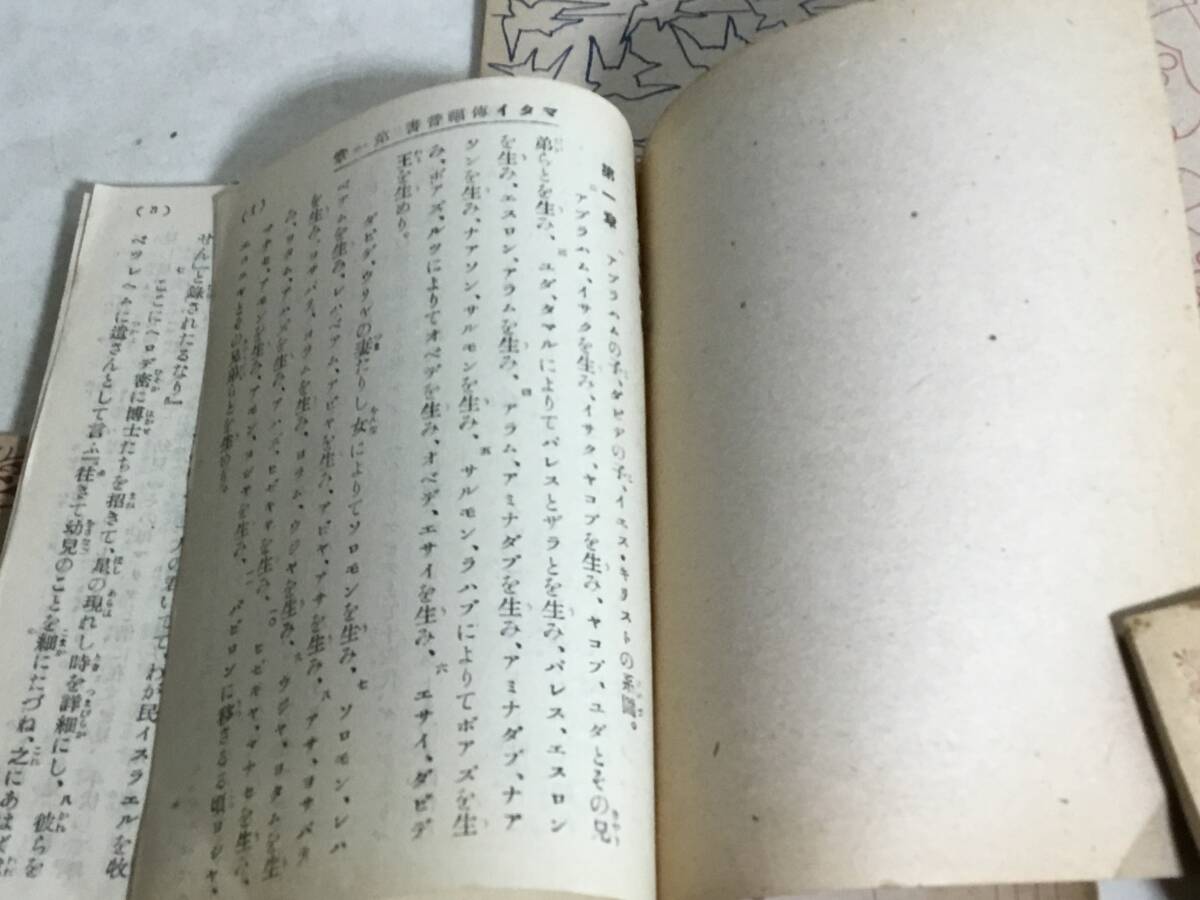 マタイ傳福音書 第一章
第一章 アブラハムの子、ダビデの子、イエス・キリストの系圖。
二 アブラハム、イサクを生み、イサク、ヤコブを生み、ヤコブ、ユダとその兄
弟らとを生み、三 ユダ、タマルによりてパレスとザラとを生み、パレス、エスロン
を生み、エスロン、アラムを生み、四 アラム、アミナダブを生み、アミナダブ、ナア
ソンを生み、ナアソン、サルモンを生み、五 サルモン、ラハブによりてボアズを生
み、ボアズ、ルツによりてオベデを生み、オベデ、エサイを生み、六 エサイ、ダビデ
王を生めり。
ダビデ、ウリヤの妻たりし女によりてソロモンを生み、七 ソロモン、レハ
ベアムを生み、レハベアム、アビヤを生み、アビヤ、アサを生み、八 アサ、ヨサパテ
を生み、ヨサパテ、ヨラムを生み、ヨラム、ウジヤを生み、九 ウジヤ、ヨタムを生
み、ヨタム、アハズを生み、アハズ、ヒゼキヤを生み、一〇 ヒゼキヤ、マナセを生み、
マナセ、アモンを生み、アモン、ヨシヤを生み、一一 バビロンに移さるる頃ヨシヤ、
エコニヤとその兄弟らとを生めり。
(1)
人の君いでて、わが民イスラエルを牧
せん』と録されたるなり』
七 ここにヘロデ密に博士たちを招きて、星の現れし時を詳細にし、八 彼らを
ベツレヘムに遣さんとして言ふ『往きて幼兒のことを細にたづね、之にあはば